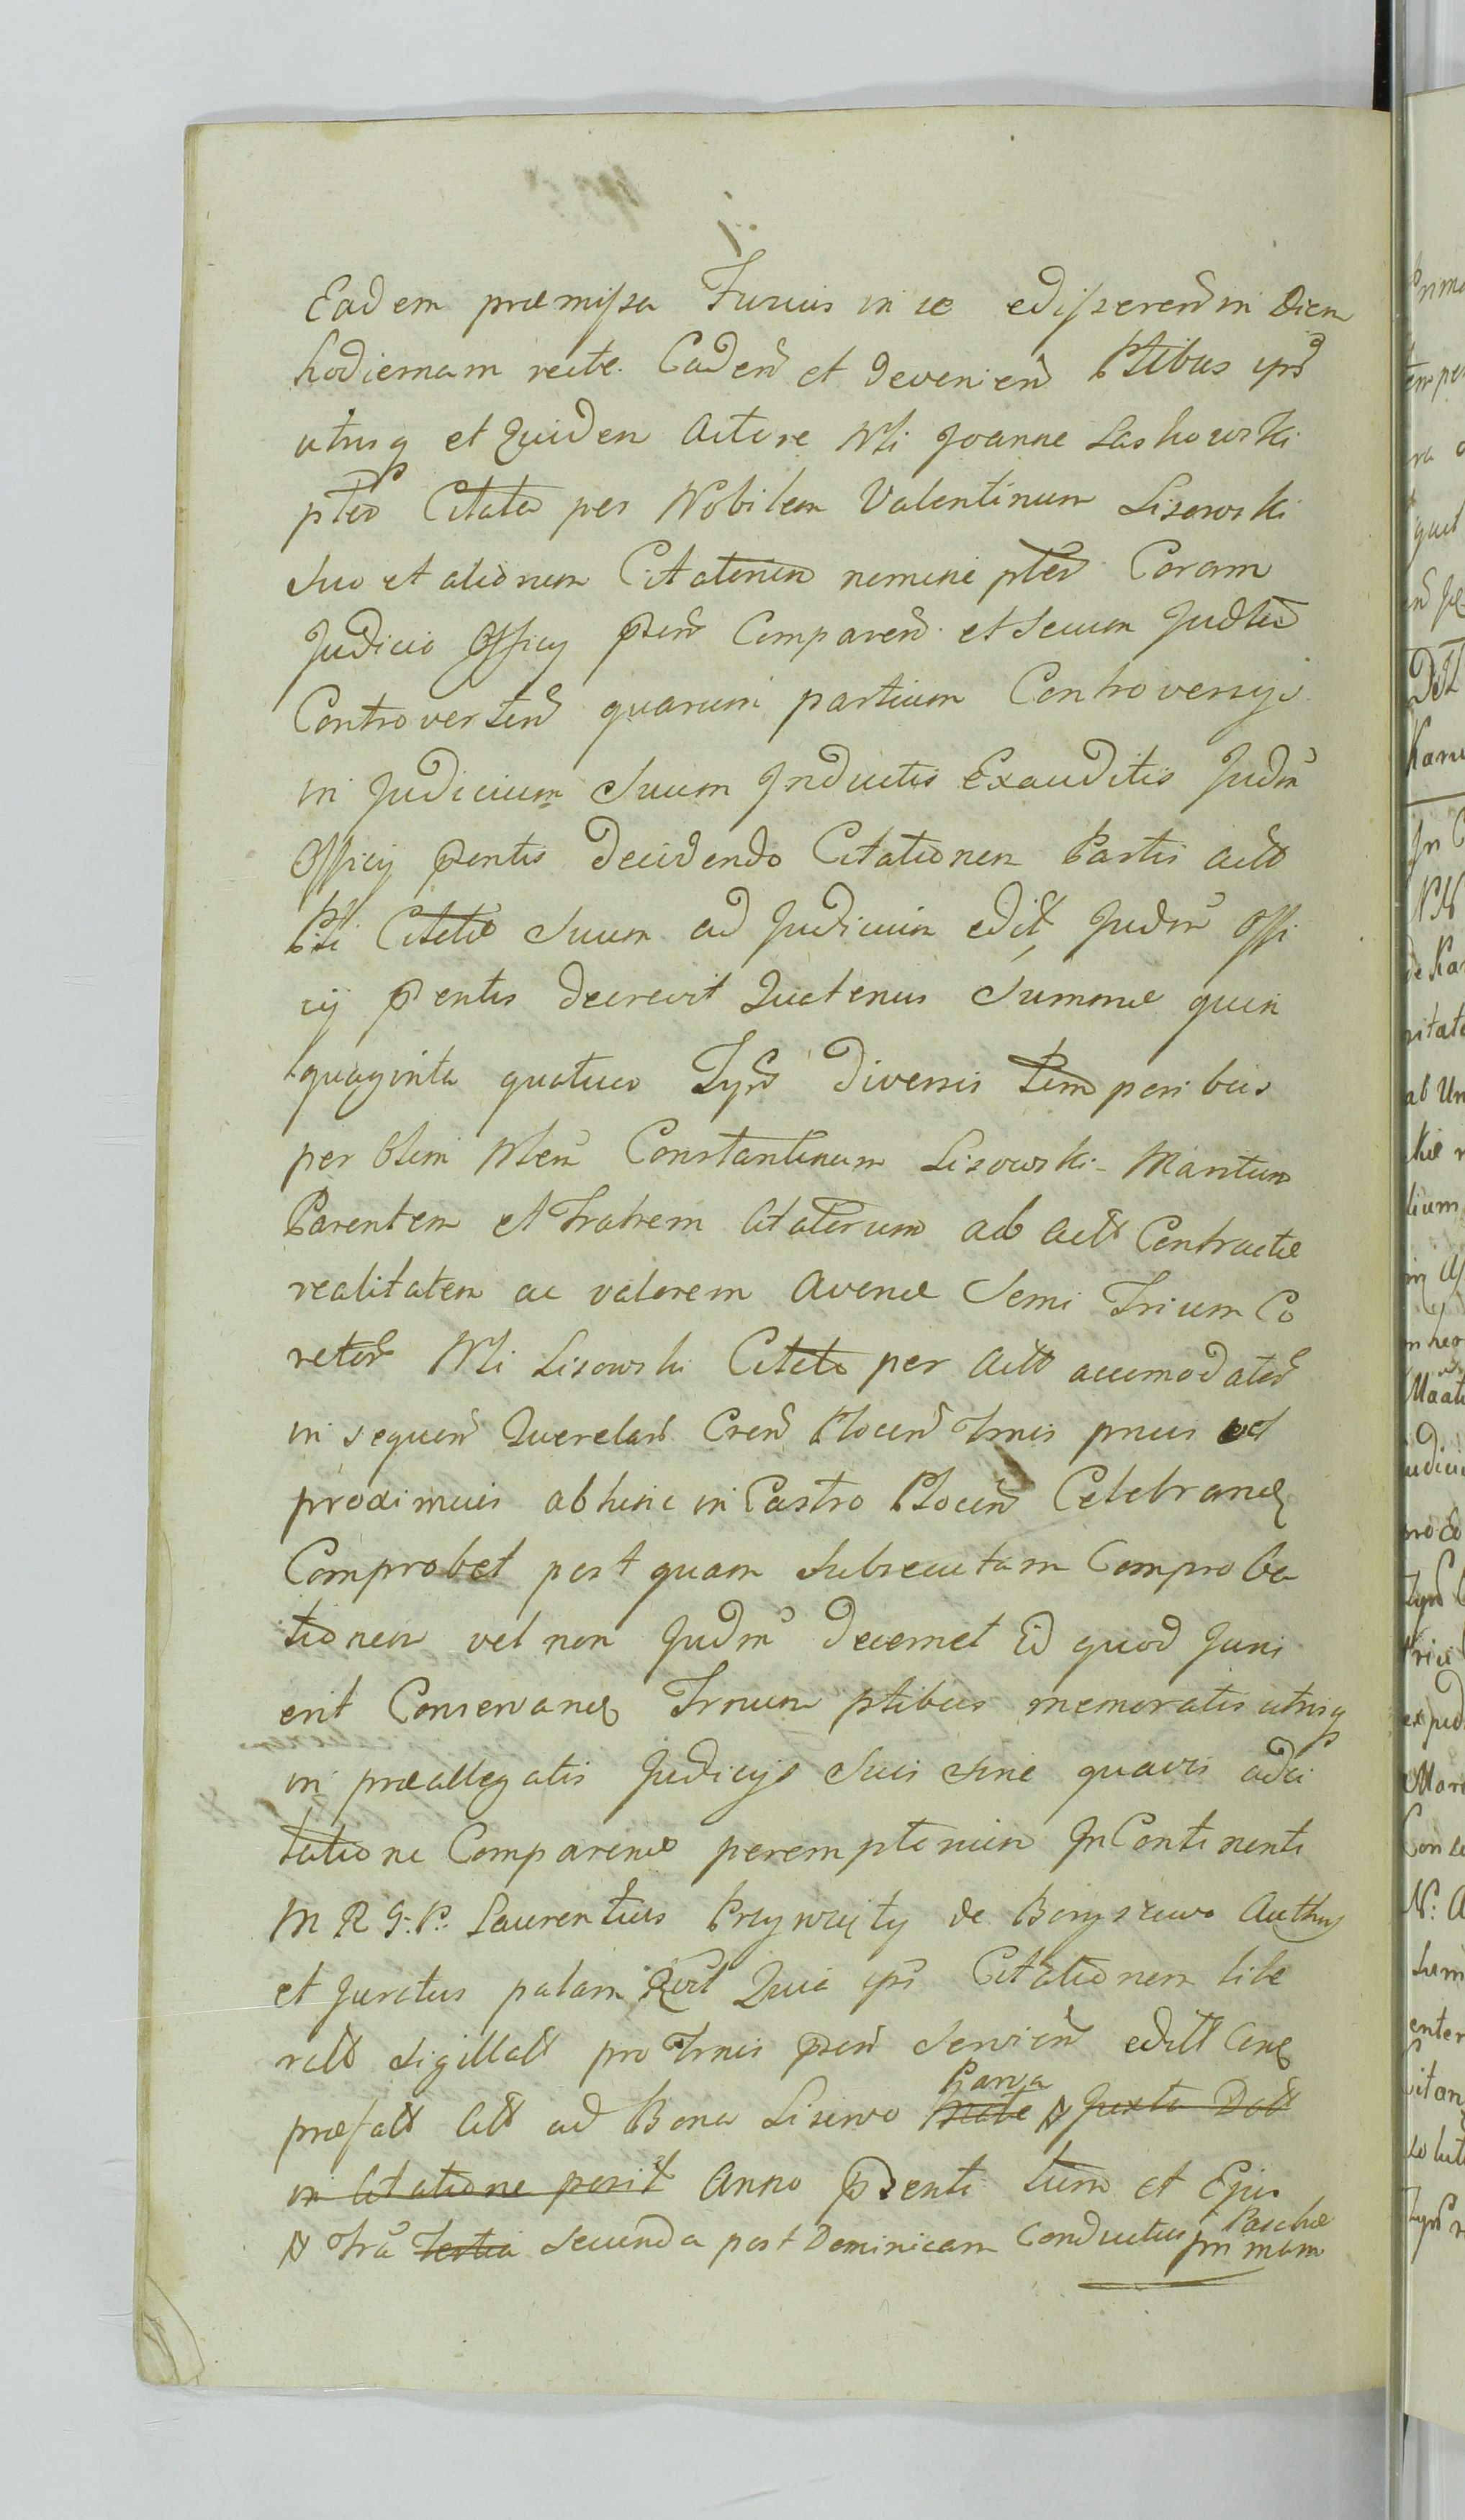 Eadem præmissa Fusius in se edisseren in Diem
hodiernam recte Caden et Devenien Ptibus ips
utrisq et Quidem Actore Mli Joanne Laskowski
pter Citato per Nobilem Valentinum Lisowski
Suo et aliorum Citatorum nomine pter Coram
Judicio Officy pñn Comparen et Secum Judter
Controverten quarum partium Controversys
in Judicium Suum Inductis Exauditis Judm
Officy pñntis Decidendo Citationem Partis actt
Pti Citato Suum ad Judicium edit, Judm Offi
cy pñntis decrevit Quatenus Summæ quin
quaginta quatuor Typs Diversis Temporibus
per Olim Mlem Constantinum Lisowski Maritum
Parentem et Fratrem Citatorum ab Actt Contractæ
realitatem ac valorem Avenæ Semi Trium Co
retor Mli Lisowski Citato per Actt accomodator
in sequen Querelar Cren Plocen Tmis pmis vel
proximius abhinc in Castro Plocen Celebrand
Comprobet post quam Subsecutam Comproba
tionem vel non Judm Decernet Id quod Juris
erit Conservand Tmum ptibus memoratis utrisq
in præallegatis Judicys Suis Sine quavis adci
tatione Comparend peremptorium In Continenti
M R G. P. Laurentius Przywity de Boryszewo Authus
et Juratus palam Rvit Quia ipse Citationem lite
ratt Sigillatt pro Tmis pñn Servien editt Cond
præfatt Actt ad Bona Lisewo Parva
Malo # Juxta Datt
in Citatione posit Anno pñenti Tum et Ejus
# Fria Tertia Secunda post Dominicam Conductus Paschæ
primam